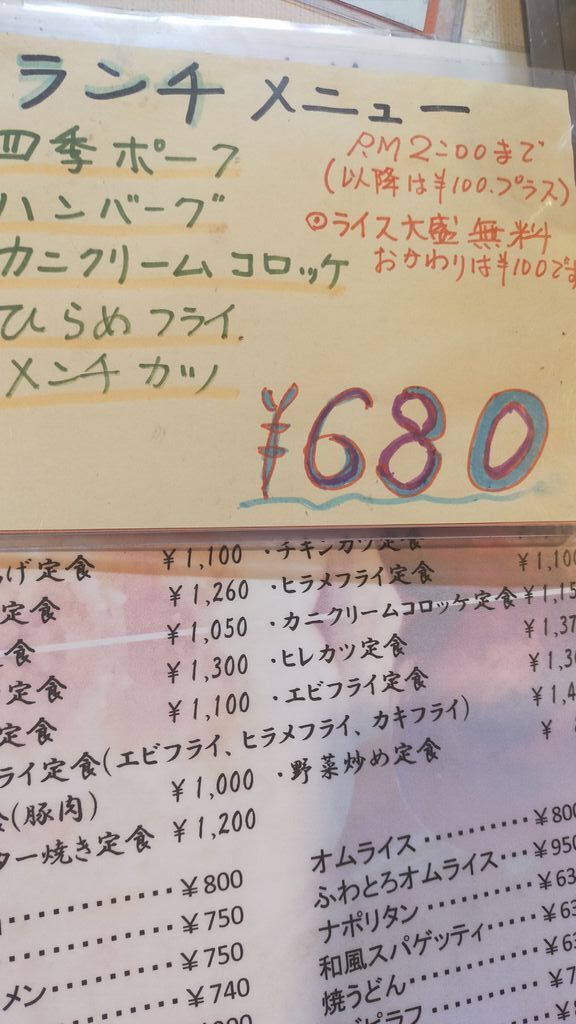 ランチメニュー
四季ポーク
P.M 2:00まで
(以降は¥100.プラス)
ハンバーグ
◎ライス大盛無料
おかわりは¥100です
カニクリームコロッケ
ひらめフライ.
メンチカツ
¥680
げ定食 ¥1,100
定食 ¥1,260
定食 ¥1,050
定食 ¥1,300
定食 ¥1,100
ライ定食(エビフライ、ヒラメフライ、カキフライ)
(豚肉) ¥1,000
ター焼き定食 ¥1,200
・チキンカツ定食 ¥1,100
・ヒラメフライ定食
・カニクリームコロッケ定食
・ヒレカツ定食
・エビフライ定食
・野菜炒め定食
¥800
¥750
¥750
メン ¥740
オムライス ¥800
ふわとろオムライス ¥950
ナポリタン
和風スパゲッティ
焼うどん
ピラフ